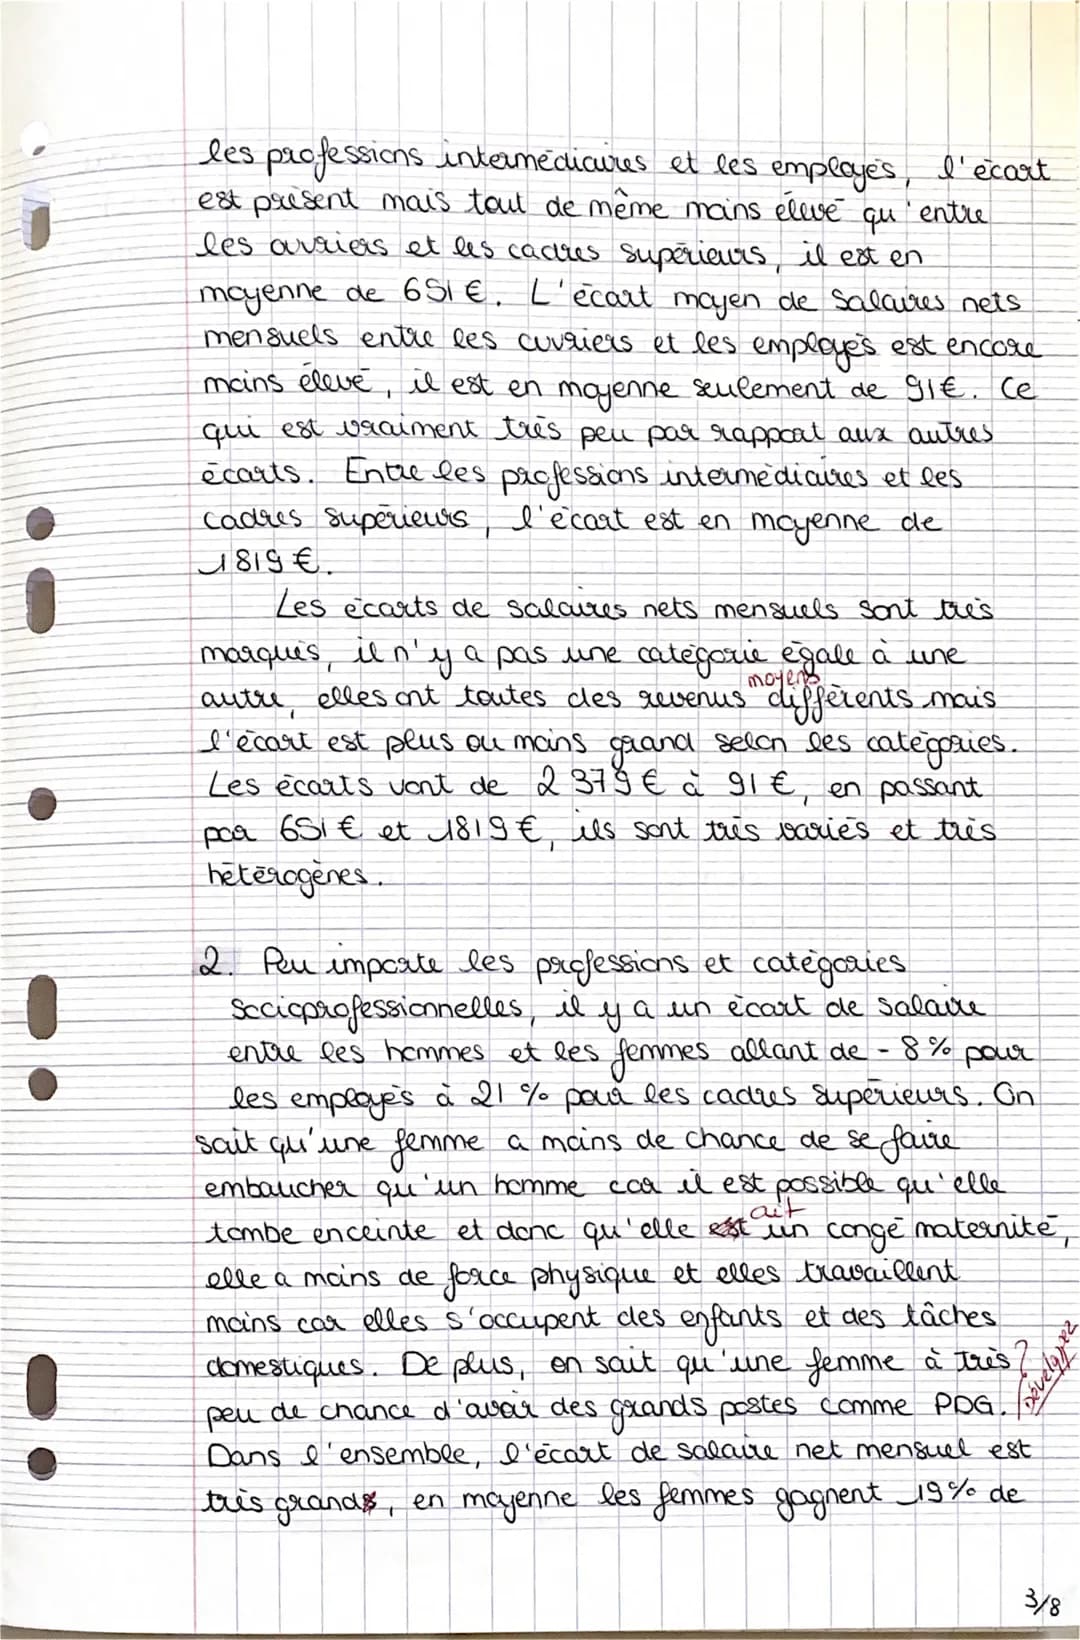 les professions intermédiaires et les employés, l'écart
est présent mais tout de même moins élevé qu'entre
les ouvriers et les cadres supérieurs, il est en
moyenne de 651 €. L'écart moyen de salaires nets
mensuels entre les ouvriers et les employés est encore
moins élevé, il est en moyenne seulement de 91 €. Ce
qui est vraiment très peu par rapport aux autres
écarts. Entre les professions intermédiaires et les
cadres supérieurs, l'écart est en moyenne de
1819 €.
Les écarts de salaires nets mensuels sont très
marqués, il n'y a pas une catégorie égale à une
moyens
autre, elles ont toutes des revenus différents mais
l'écart est plus ou moins grand selon les catégories.
Les écarts vont de 2 379 € à 91 €, en passant
par 651 € et 1819 €, ils sont très variés et très
hétérogènes.
2. Peu importe les professions et catégories
socioprofessionnelles, il y a un écart de salaire
entre les hommes et les femmes allant de - 8 % pour
les employés à 21 % pour les cadres supérieurs. On
sait qu'une femme a moins de chance de se faire
embaucher qu'un homme car il est possible qu'elle
ait
tombe enceinte et donc qu'elle est un congé maternité,
elle a moins de force physique et elles travaillent
moins car elles s'occupent des enfants et des tâches
domestiques. De plus, on sait qu'une femme à très ?
peu de chance d'avoir des grands postes comme PDG. Développez
Dans l'ensemble, l'écart de salaire net mensuel est
très grands, en moyenne les femmes gagnent 19 % de
3/8